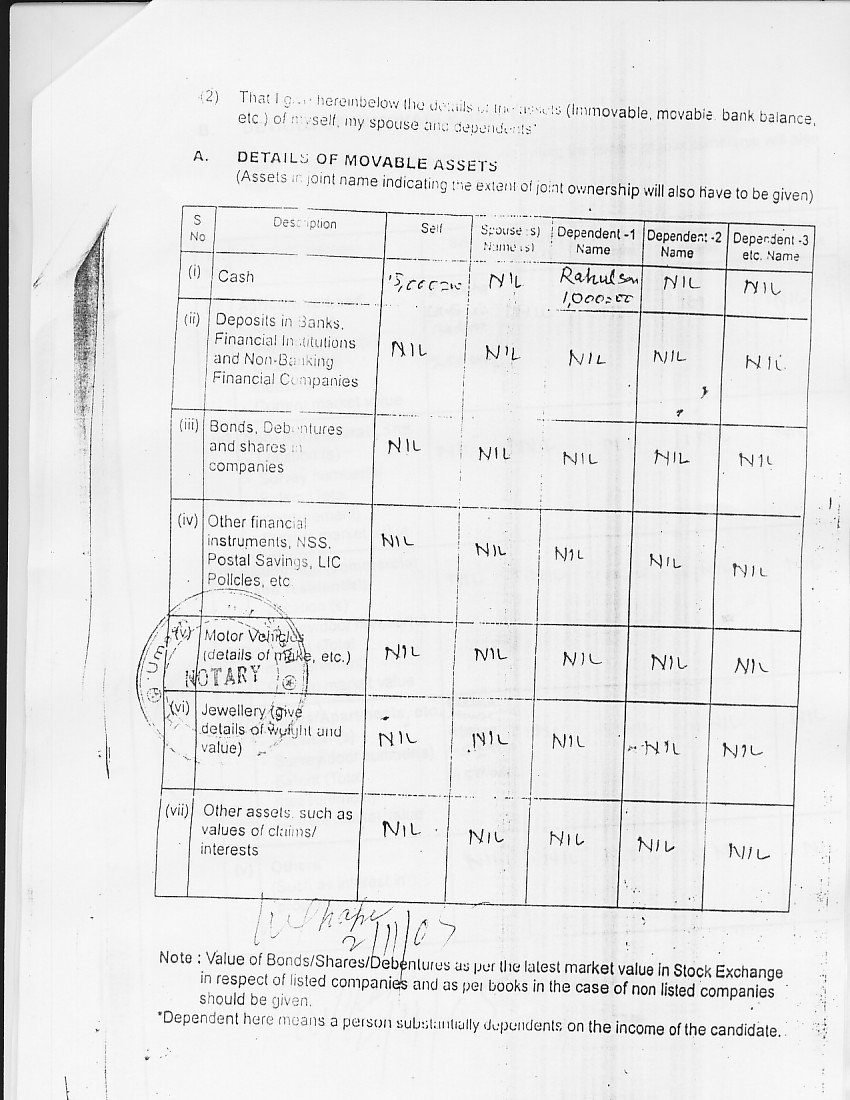 (2) That I give hereinbelow the details of the assets (Immovable, movable, bank balance,
etc.) of myself, my spouse and dependents*
A. DETAILS OF MOVABLE ASSETS
(Assets in joint name indicating the extent of joint ownership will also have to be given)
S No Description Self Spouse(s) Name(s) Dependent -1 Name Dependent -2 Name Dependent -3 etc. Name
(i) Cash NIL Rahul son 1,000=00 NIL NIL
(ii) Deposits in Banks,
Financial Institutions
and Non-Banking
Financial Companies
NIL NIL NIL NIL NIL
(iii) Bonds, Debentures
and shares in
companies
NIL NIL NIL NIL NIL
(iv) Other financial
instruments, NSS,
Postal Savings, LIC
Policies, etc
NIL NIL NIL NIL NIL
(v) Motor Vehicles
(details of make, etc.)
NIL NIL NIL NIL NIL
NOTARY
(vi) Jewellery (give
details of weight and
value)
NIL NIL NIL NIL NIL
(vii) Other assets, such as
values of claims/
interests
NIL NIL NIL NIL NIL
Note : Value of Bonds/Shares/Debentures as per the latest market value in Stock Exchange
in respect of listed companies and as per books in the case of non listed companies
should be given.
*Dependent here means a person substantially dependents on the income of the candidate.